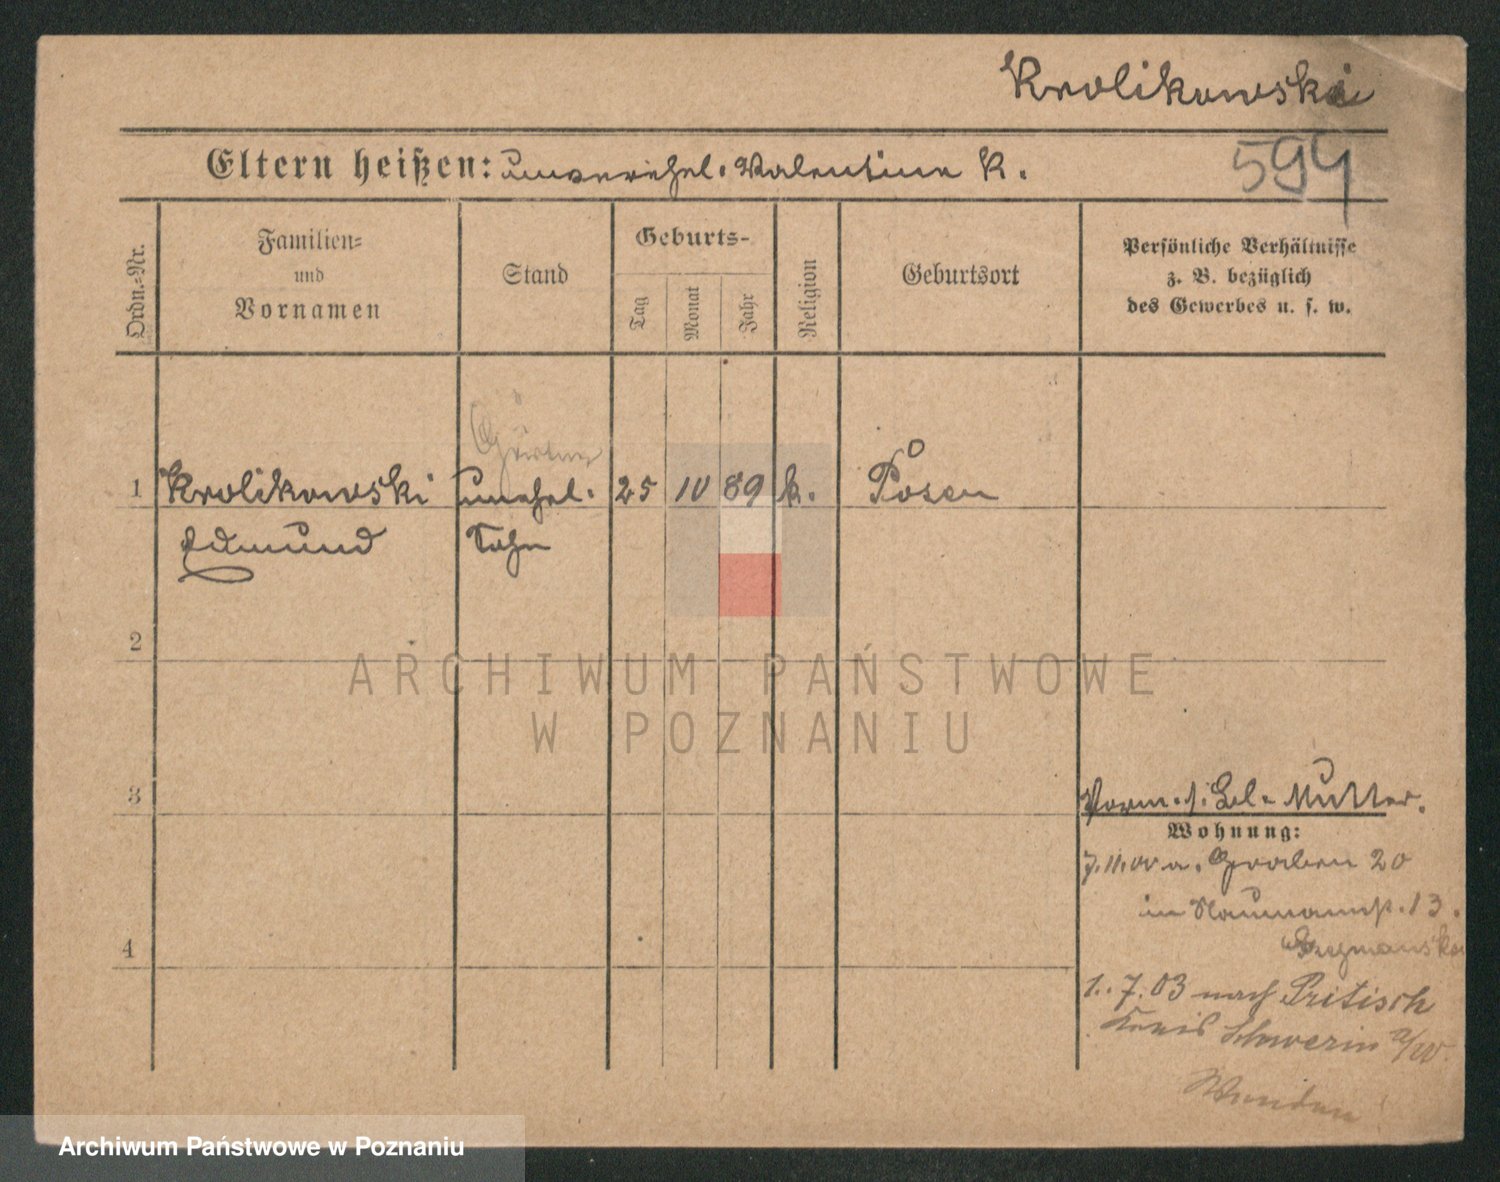 Krolikowski
Eltern heißen: unverehel. Valentine K.
594
Ordn.-Nr.
Familien-
und
Vornamen
Stand
Geburts-
Tag
Monat
Jahr
Religion
Geburtsort
Persönliche Verhältnisse
z. B. bezüglich
des Gewerbes u. s. w.
Gärtner
1 Krolikowski unehel. 25 10 89 k. Posen
Edmund Sohn
2
ARCHIWUM PAŃSTWOWE
W POZNANIU
3
Vorm. s. Mutter.
Wohnung:
7.11.00 a. Graben 20
in Naumannst. 13.
4
1.. 7. 03 nach Pritisch
Kreis Schwerin a/W.
Archiwum Państwowe w Poznaniu